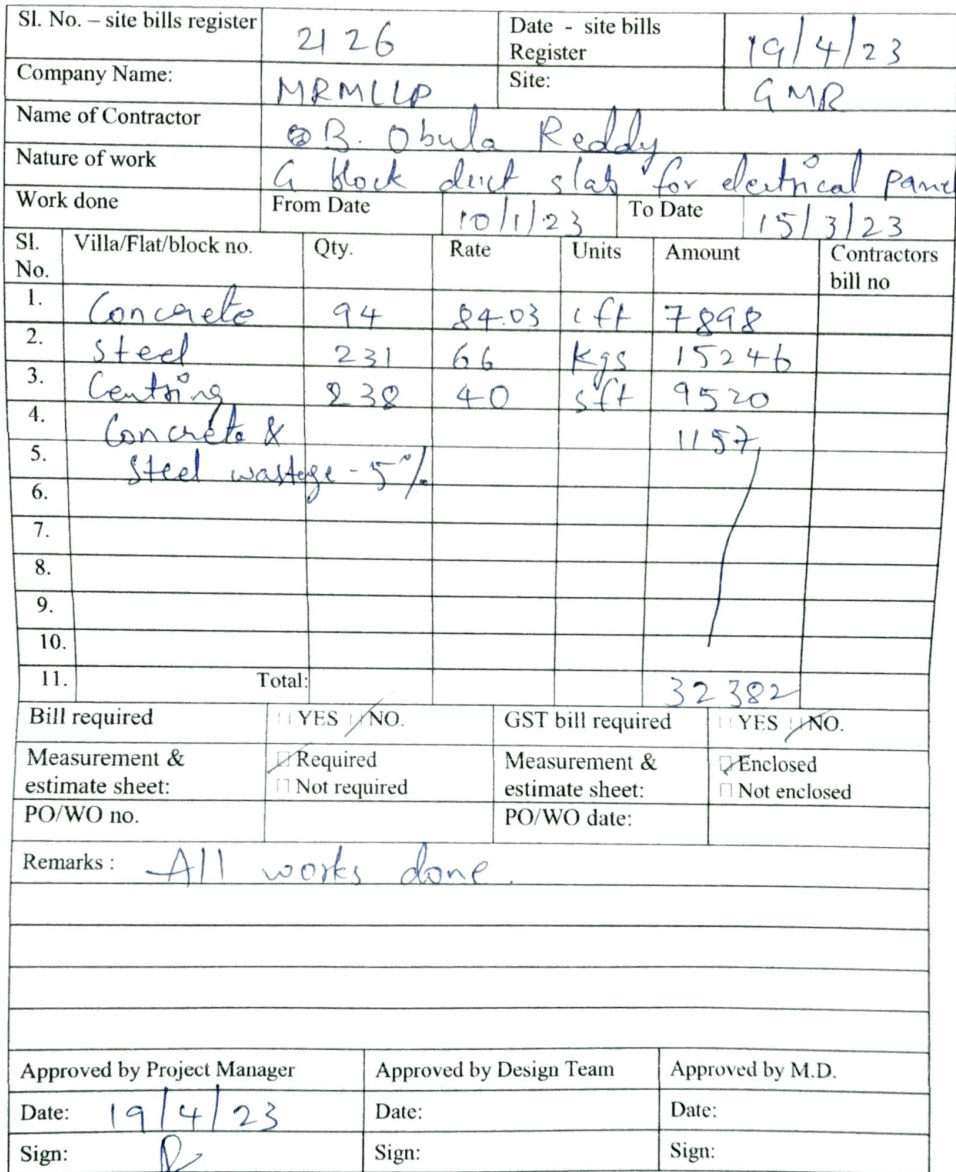 Sl. No. – site bills register 2126 Date - site bills Register 19/4/23
Company Name: MRMLLP Site: GMR
Name of Contractor B. Obula Reddy
Nature of work G block duct slab for electrical panel
Work done From Date 10/1/23 To Date 15/3/23
Sl. No. Villa/Flat/block no. Qty. Rate Units Amount Contractors bill no
1. Concrete 94 84.03 cft 7898
2. Steel 231 66 kgs 15246
3. Centring 238 40 sft 9520
4. Concrete & 1157
5. Steel wastage - 5%
6.
7.
8.
9.
10.
11. Total: 32382
Bill required YES NO. GST bill required YES NO.
Measurement & estimate sheet: Required Measurement & estimate sheet: Enclosed
Not required Not enclosed
PO/WO no. PO/WO date:
Remarks : All works done.
Approved by Project Manager Approved by Design Team Approved by M.D.
Date: 19/4/23 Date: Date:
Sign: Sign: Sign: